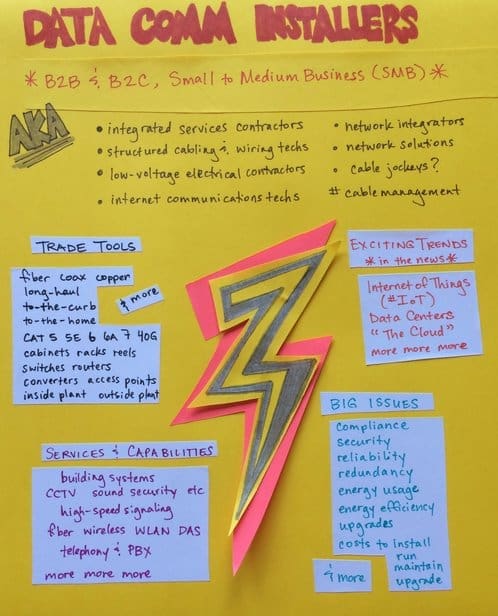 DATA COMM INSTALLERS
* B2B & B2C, Small to Medium Business (SMB) *
AKA
• integrated services contractors
• structured cabling & wiring techs
• low-voltage electrical contractors
• internet communications techs
• network integrators
• network solutions
• cable jockeys?
# cable management
TRADE TOOLS
fiber coax copper
long-haul
to-the-curb
to-the-home
& more
CAT 5 5E 6 6A 7 40G
cabinets racks reels
switches routers
converters access points
inside plant outside plant
EXCITING TRENDS
* in the news *
Internet of Things
(#IoT)
Data Centers
"The Cloud"
more more more
SERVICES & CAPABILITIES
building systems
CCTV sound security etc
high-speed signaling
fiber wireless WLAN DAS
telephony & PBX
more more more
BIG ISSUES
compliance
security
reliability
redundancy
energy usage
energy efficiency
upgrades
costs to install
run
maintain
upgrade
& more